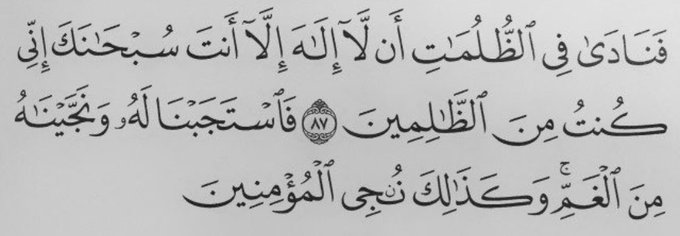 فَنَادَىٰ فِي ٱلظُّلُمَٰتِ أَن لَّآ إِلَٰهَ إِلَّآ أَنتَ سُبْحَٰنَكَ إِنِّي
كُنتُ مِنَ ٱلظَّٰلِمِينَ ٨٧ فَٱسْتَجَبْنَا لَهُۥ وَنَجَّيْنَٰهُ
مِنَ ٱلْغَمِّۚ وَكَذَٰلِكَ نُۨجِي ٱلْمُؤْمِنِينَ